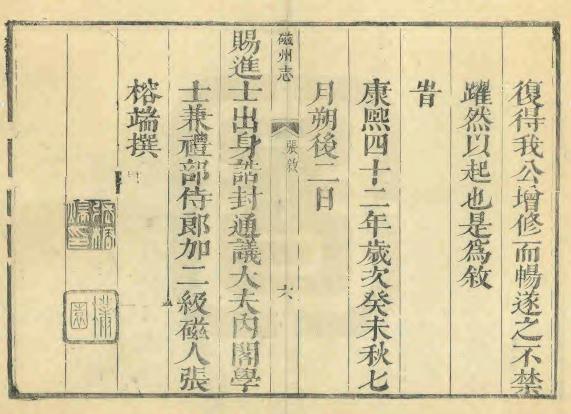 復得我公增修而暢遂之不禁
躍然以起也是爲敘
旹
康熙四十二年歲次癸未秋七
月朔後二日
磁州志
張敘
六
賜進士出身誥封通議大夫內閣學
士兼禮部侍郎加二級磁人張
榕端撰